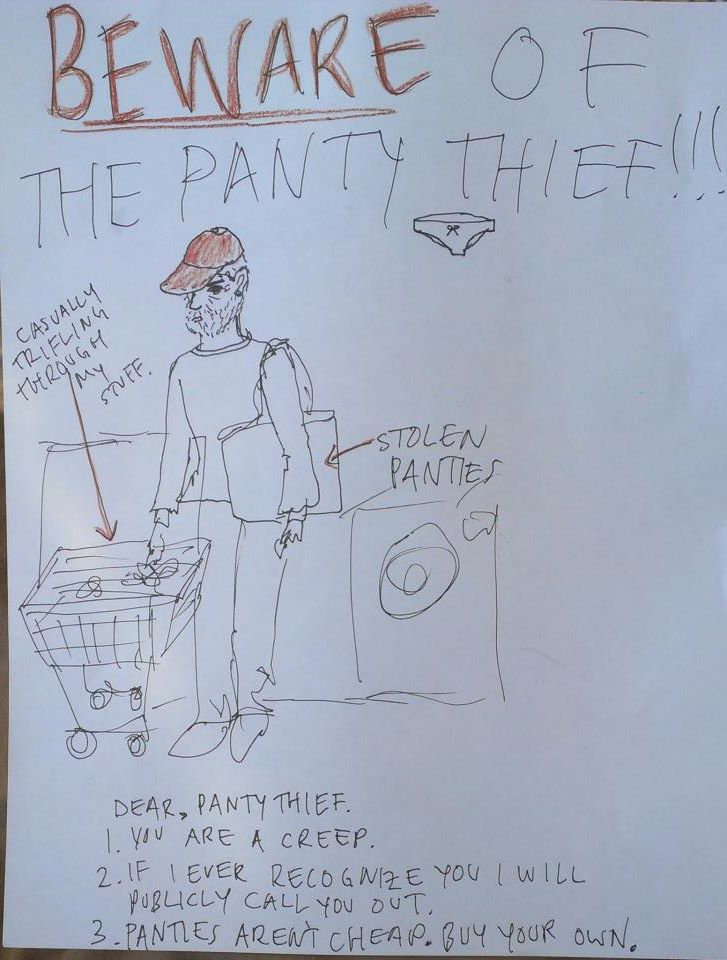 BEWARE OF
THE PANTY THIEF!!!
CASUALLY
TRIFLING
THROUGH
MY
STUFF.
STOLEN
PANTIES
DEAR, PANTY THIEF.
1. YOU ARE A CREEP.
2. IF I EVER RECOGNIZE YOU I WILL
PUBLICLY CALL YOU OUT.
3. PANTIES AREN'T CHEAP. BUY YOUR OWN.